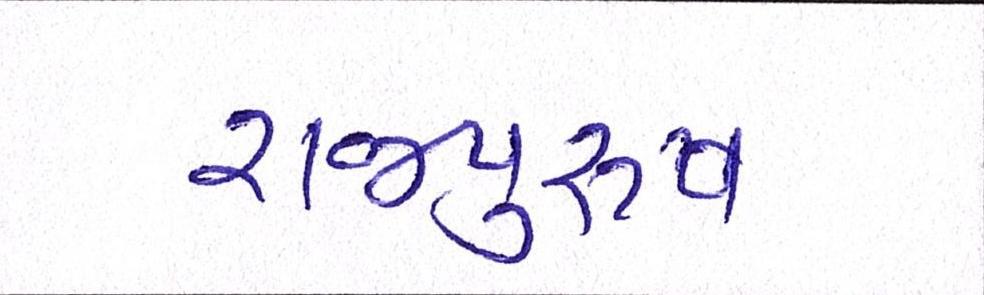 રાજપુરુષ